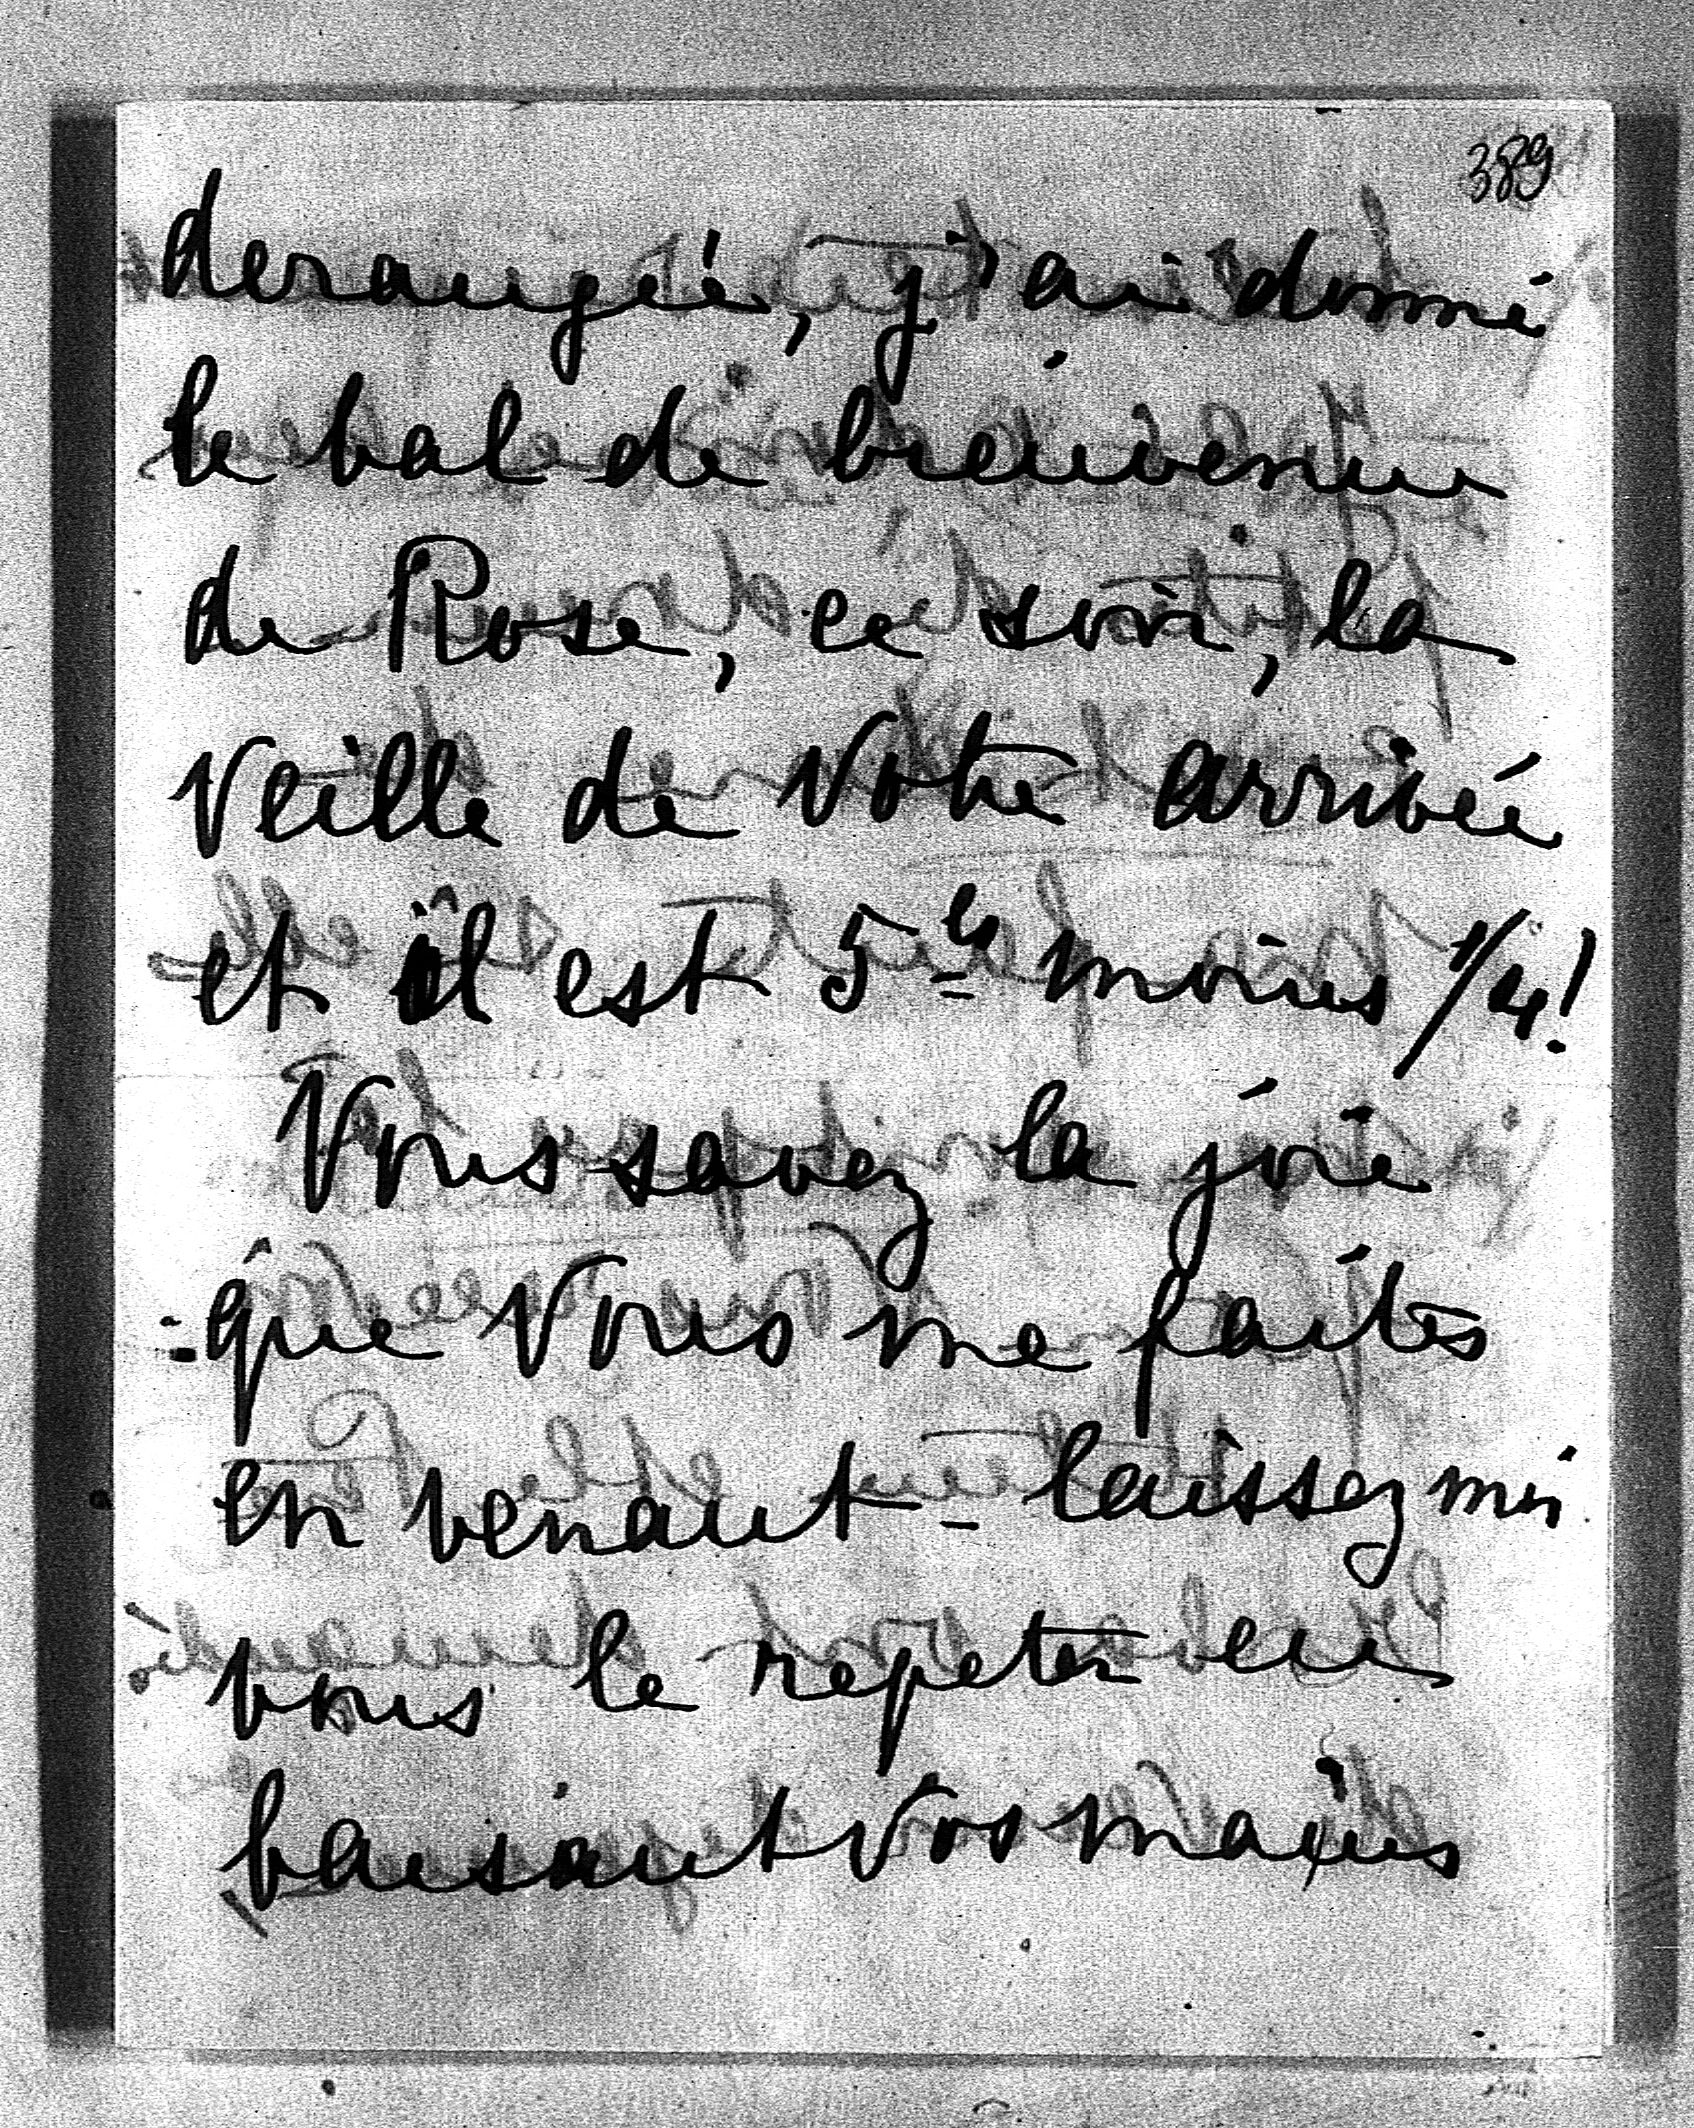 389
derangée, j'ai donné
le bal de bienvenue
de Rose, ce soir, la
veille de Votre arrivée
et il est 5 hs moins 1/4!
Vous savez la joie
que Vous me faites
en venant - laissez moi
vous le repeter en
baisant Vos mains